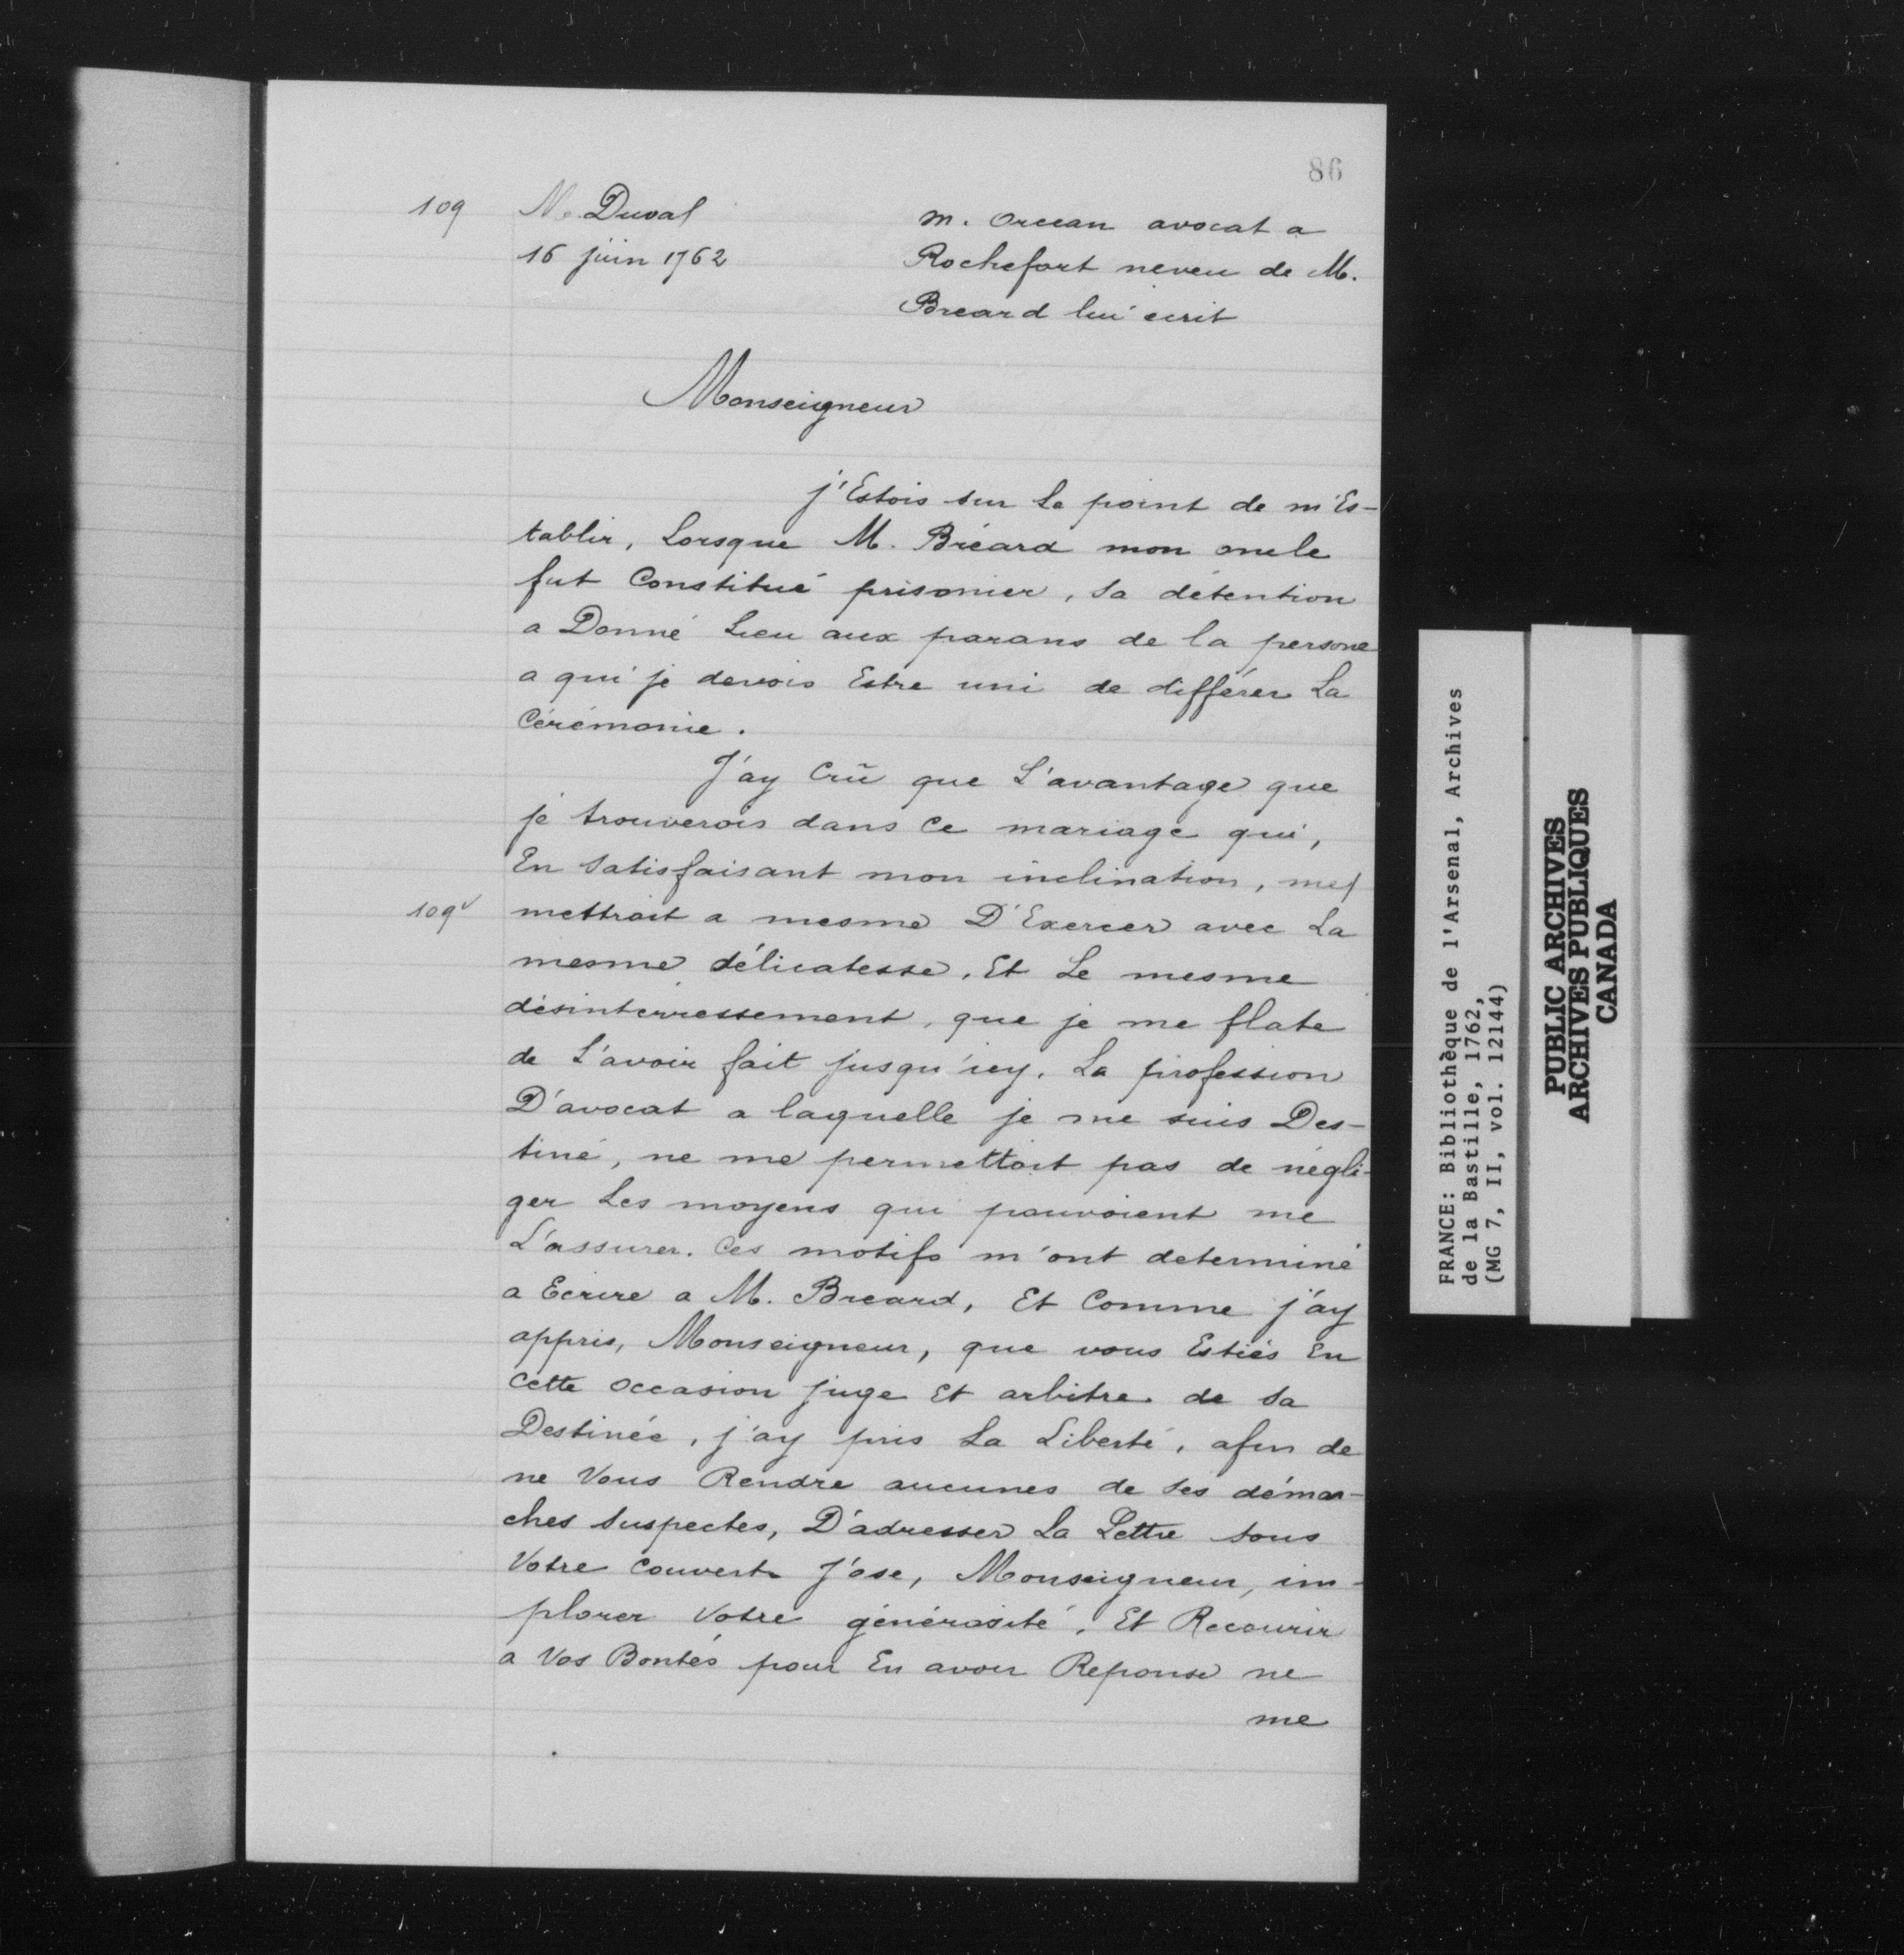 86
109 M. Duval
16 juin 1762
M. Orceau avocat a
Rochefort neveu de M.
Breard lui écrit
Monseigneur
j'Estois sur Le point de m'Es-
tablir, Lorsque M. Bréard mon oncle
fut Constitué prisonier, Sa détention
a Donné Lieu aux parans de la persone
a qui je devois Estre uni de différer La
Cérémonie.
J'ay Crû que L'avantage que
je trouverois dans Ce mariage qui,
En Satisfaisant mon inclination, me/
109v mettrait a mesme D'Exercer avec La
mesme délicatesse, Et Le mesme
désinterressement, que je me flate
de L'avoir fait jusqu'icy. La profession
D'avocat a laquelle je me suis Des-
tiné, ne me permettoit pas de négli-
ger Les moyens qui pouvoient me
L'assurer. Ces motifs m'ont determiné
a Ecrire a M. Breard, Et Comme j'ay
appris, Monseigneur, que vous Estiés En
Cette occasion juge Et arbitre de Sa
Destinée, j'ay pris La Liberté, afin de
ne Vous Rendre aucunes de Ses démar-
ches Suspectes, D'adresser La Lettre Sous
Votre Couvert. J'ose, Monseigneur, im-
plorer Votre générosité, Et Recourir
a Vos Bontés pour En avoir Reponse ne
me
FRANCE: Bibliothèque de l'Arsenal, Archives
de la Bastille, 1762,
(MG 7, II, vol. 12144)
PUBLIC ARCHIVES
ARCHIVES PUBLIQUES
CANADA